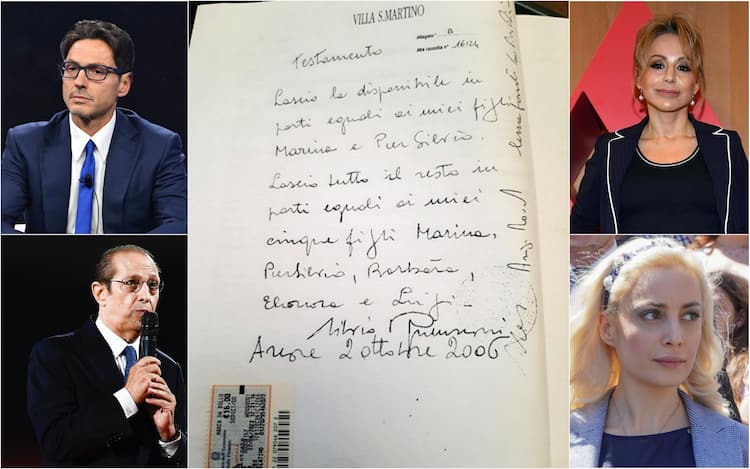 VILLA S. MARTINO
Allegato n° B
Alla raccolta n° 16124
Testamento
Lascio la disponibile in
parti eguali ai miei figli
Marina e Pier Silvio.
Lascio tutto il resto in
parti eguali ai miei
cinque figli Marina,
Piersilvio, Barbara,
Eleonora e Luigi.
Silvio Berlusconi
Arcore 2 ottobre 2006
MARCA DA BOLLO
€16,00